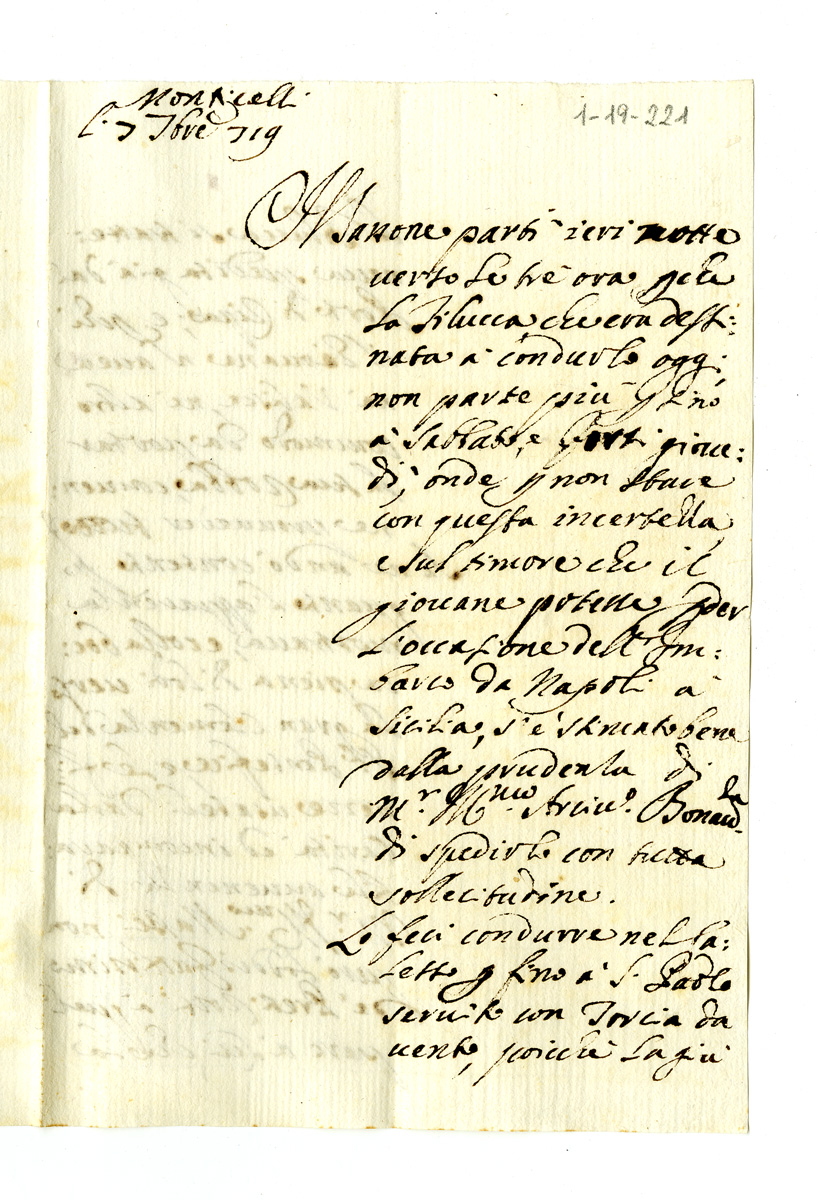 Monticelli
li 7 7bre 719
1-19-221
Massone partì ieri notte
verso le trè ora pche
la Filucca che era desti:
nata à condurlo oggi
non parte più p sino
à sabbato, e forsi giove:
dì, onde p non stare
con questa incertezza
e sul timore che il
giovane potesse pder
l'occasione dell'Im:
barco da Napoli à
Sicilia, s'è stimato bene
dalla prudenza di
Mr. Arciv.o Bonav.da
di spedirlo con tutta
sollecitudine.
Lo feci condurre nel Ca:
letto p fino à S. Paolo
servito con Torcia da
vento, poiche la giù